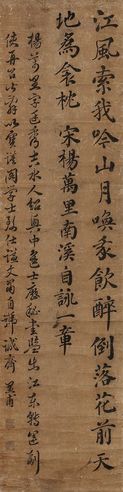 江風索我吟山月喚我飲醉倒落花前天
地為衾枕 宋楊萬里南溪自詠一章
楊萬里字廷秀吉水人紹興中進士歷秘書監出江東轉運副
使再召皆辭以寶謨閣學士致仕諡文節自號誠齋